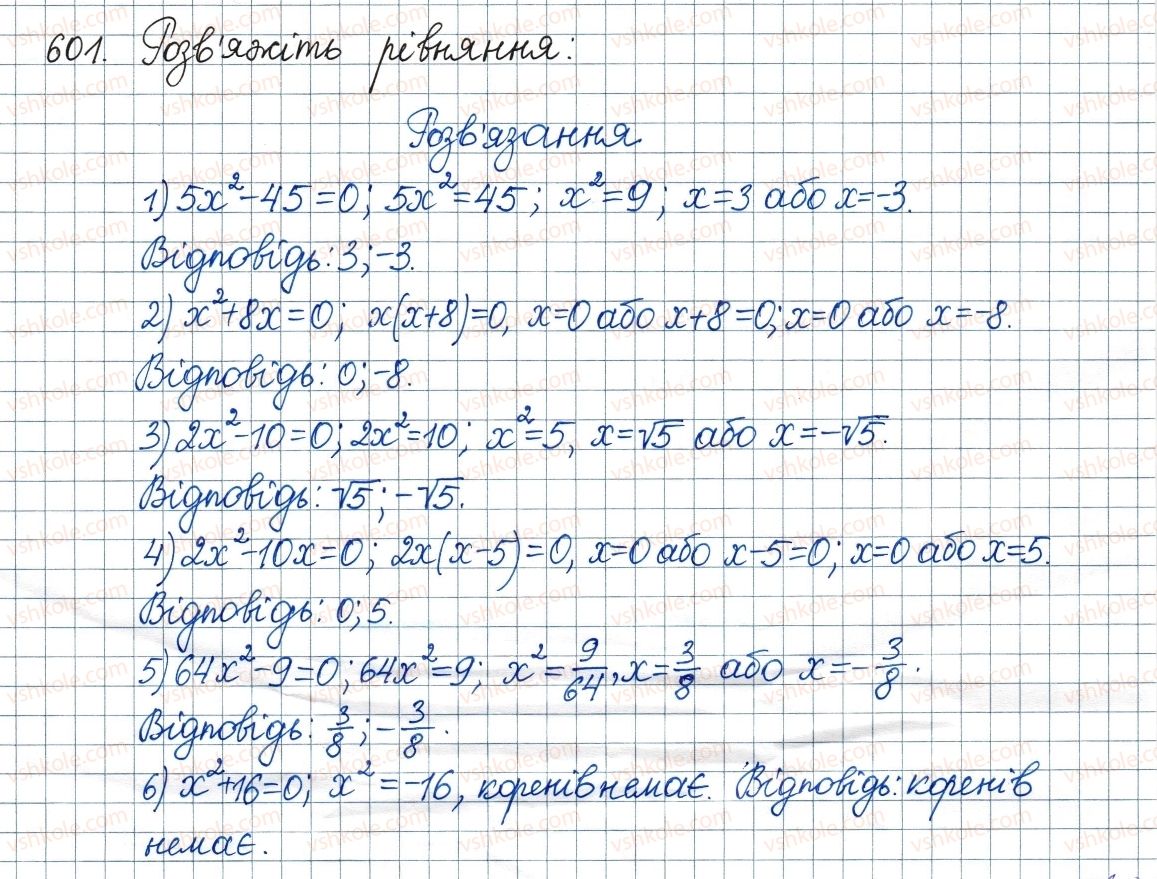 601. Розв'яжіть рівняння:
Розв'язання
1) 5x²-45=0; 5x²=45; x²=9; x=3 або x=-3.
Відповідь: 3;-3.
2) x²+8x=0; x(x+8)=0, x=0 або x+8=0; x=0 або x=-8.
Відповідь: 0;-8.
3) 2x²-10=0; 2x²=10; x²=5, x=√5 або x=-√5.
Відповідь: √5; -√5.
4) 2x²-10x=0; 2x(x-5)=0, x=0 або x-5=0; x=0 або x=5.
Відповідь: 0; 5.
5) 64x²-9=0; 64x²=9; x²=9/64, x=3/8 або x=-3/8.
Відповідь: 3/8; -3/8.
6) x²+16=0; x²=-16, коренів немає. Відповідь: коренів
немає.